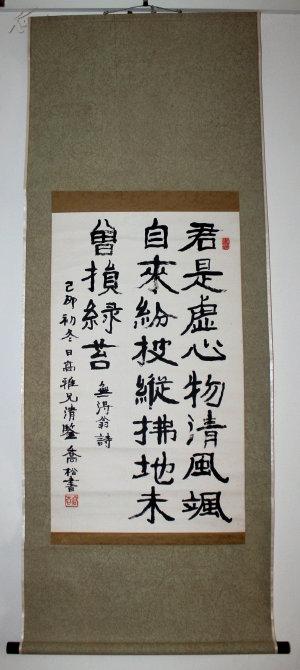 君是虛心物清風颯
自來紛披縱拂地未
曾損綠苔
無得翁詩
己卯初冬日高雅兄清鑒喬松書